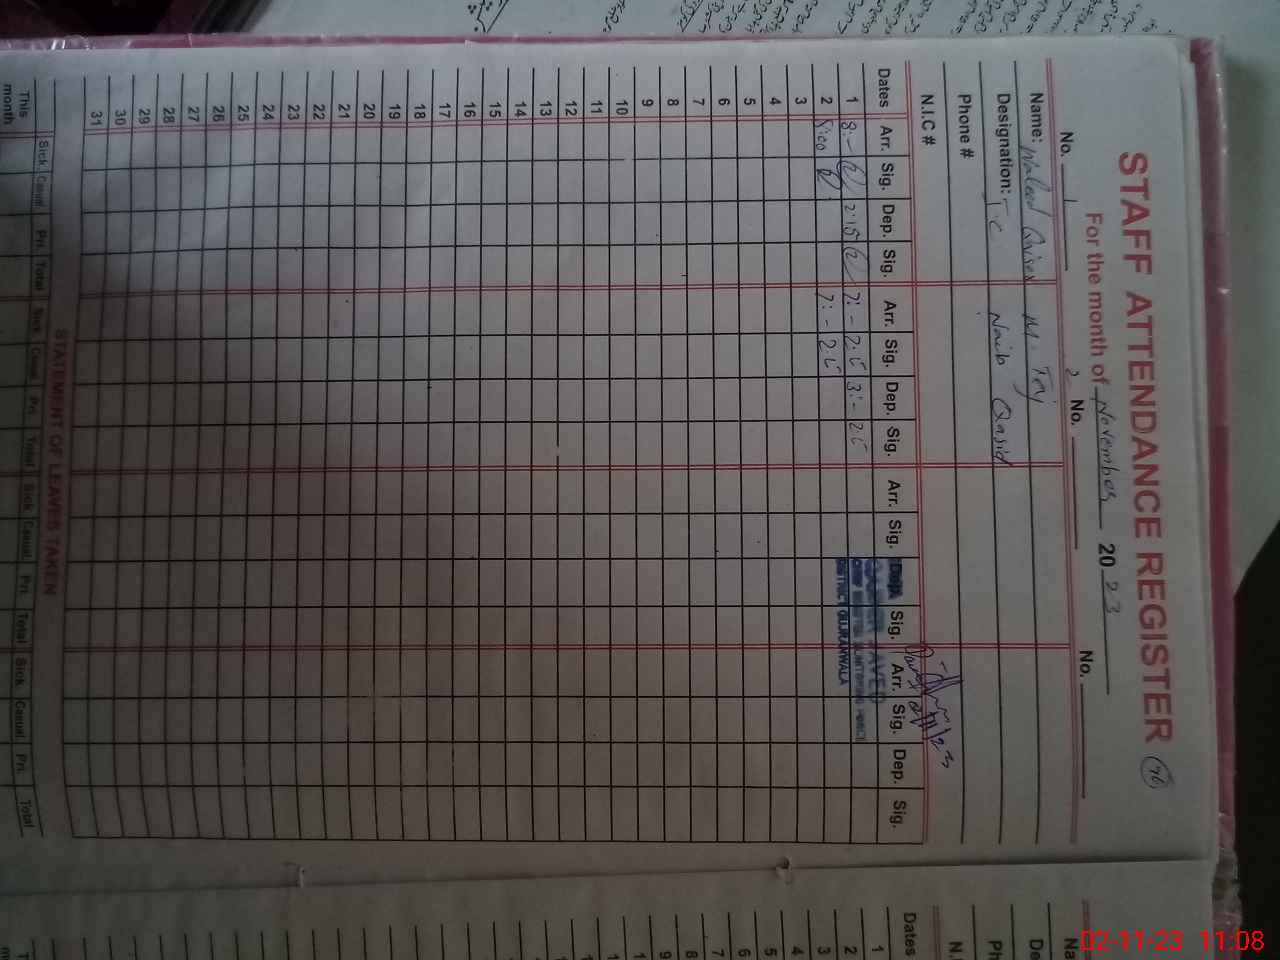 STAFF ATTENDANCE REGISTER 76
For the month of November 2023
No. 1 2 No. No.
Name: Waleed Qaiser M. Taj
Designation:- J-C Naib Qasid
Phone #
N.I.C #
Dates Arr. Sig. Dep. Sig. Arr. Sig. Dep. Sig. Arr. Sig. Sig. Arr. Sig. Dep. Sig.
1 8:- 2:15 7:-
2 8:00 7:-
3
4
5
6
7
8
9
10
11
12
13
14
15
16
17
18
19
20
21
22
23
24
25
26
27
28
29
30
31
DISTRICT GUJRANWALA
STATEMENT OF LEAVES TAKEN
Sick Casual Pri. Total Sick Casual Pri. Total Sick Casual Pri. Total Sick Casual Pri. Total
This month
Dates
1
2
3
4
5
6
7
8
9
02-11-23 11:08